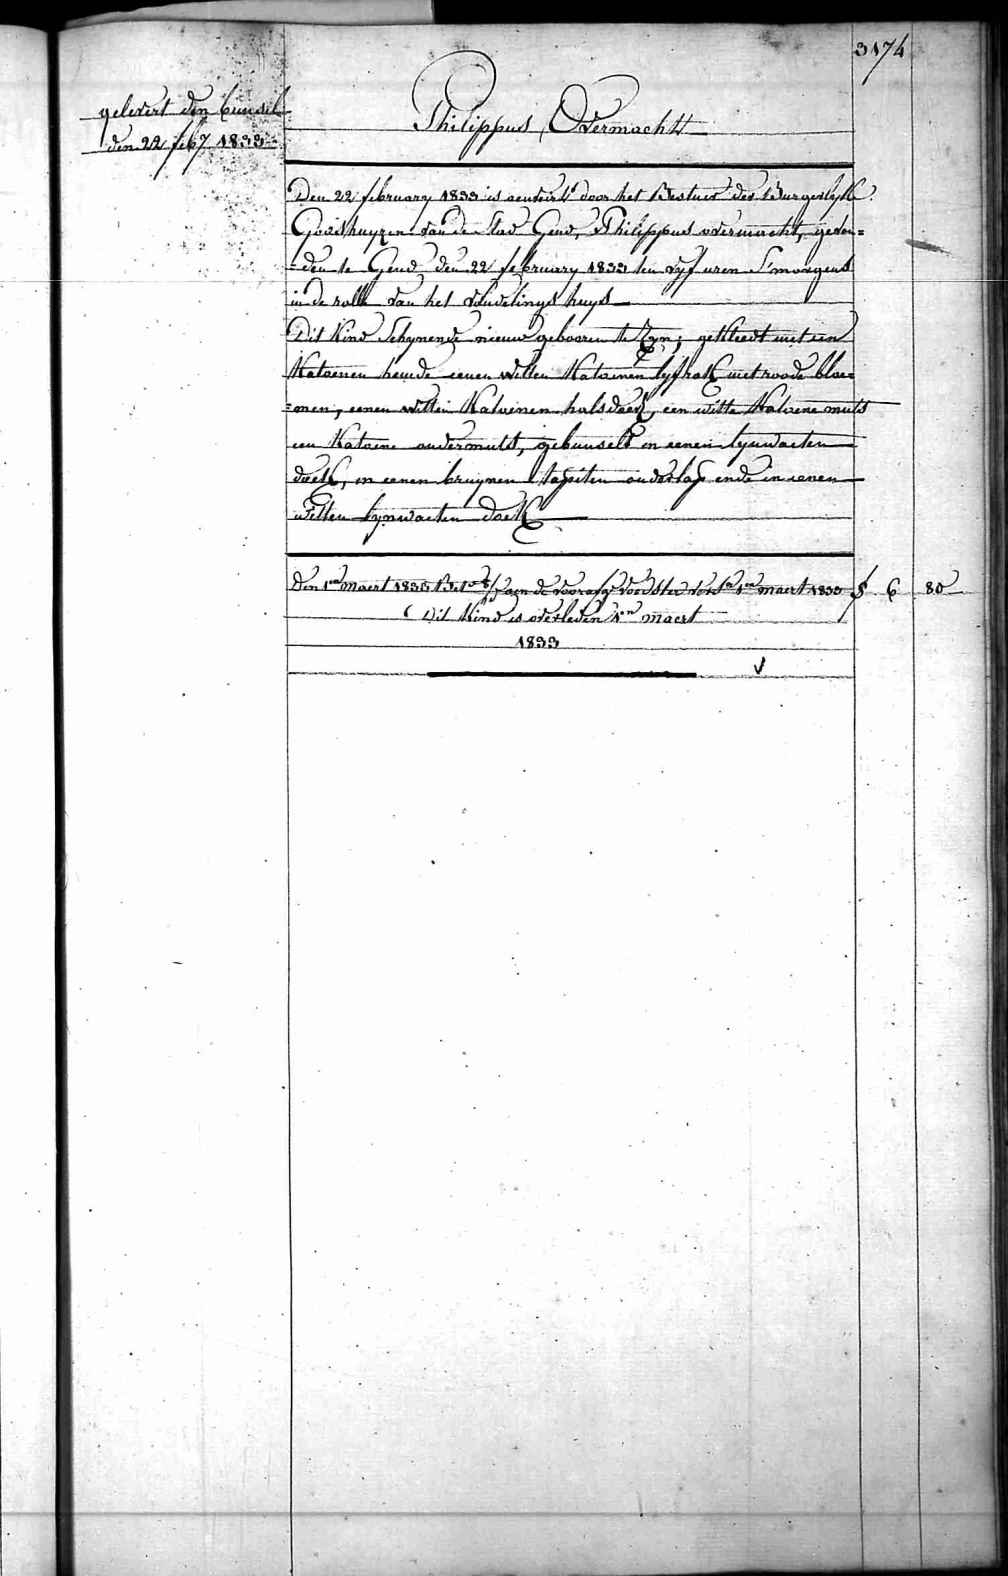 3174
gelevert den bunsel
den 22 feby 1833
Philippus Overmacht
Den 22 february 1833 is aenveirt door het Bestuer der Burgerlyke
Godshuyzen van de Stad Gend, Philippus overmacht, gevon=
=den te Gend den 22 february 1833 ten vyf uren S'morgens
in de rolle van het vondelings huys
Dit Kind Schynende nieuw gebooren te Zyn; gekleedt met een
Katoenen hemde eenen witten Katoenen lyfrok met roode bloe=
=men, eenen witten Katoenen halsdoek, een witte Katoene muts
een Katoene ondermuts, gebunselt in eenen lynwaeten
doek, in eenen bruynen tapiten onderlap ende in eenen
witten lynwaeten doek
Den 1en maert 1833 aen de voorsz voedster tot 1en maert 1833 f 6 80
Dit Kind is overleden 1en maert
1833